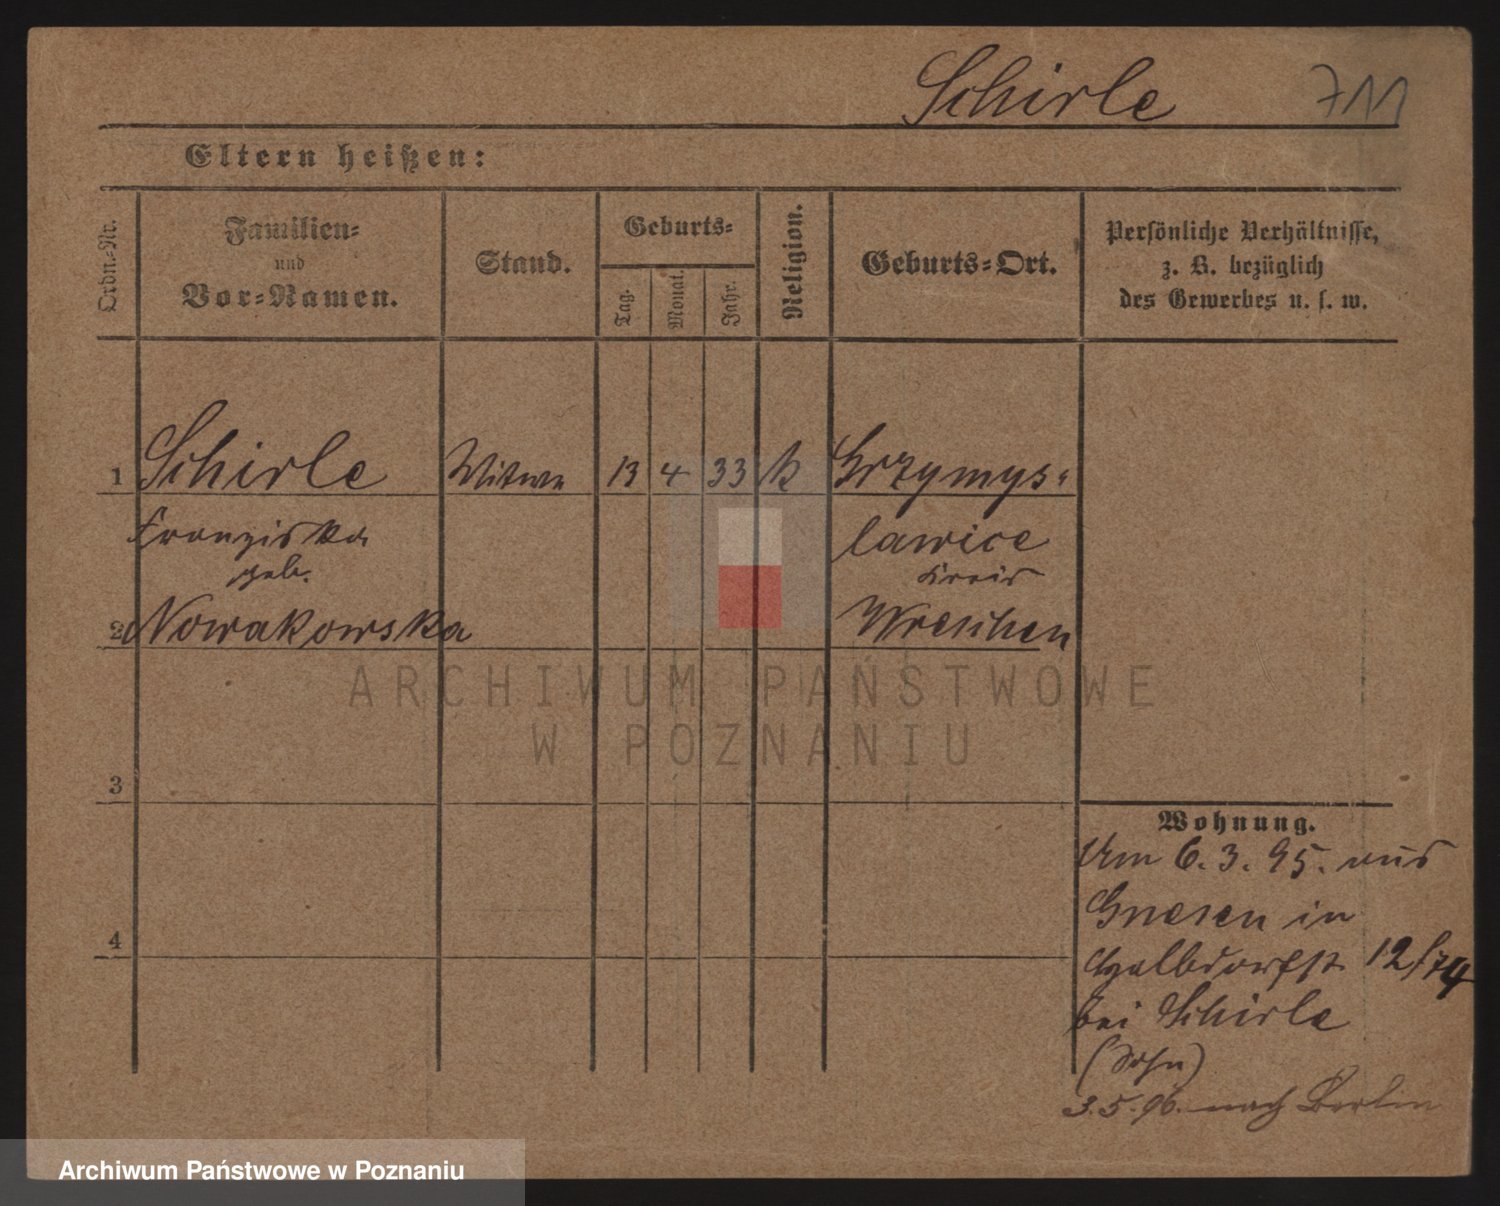 Schirle 711
Eltern heißen:
Ordn.-Nr.
Familien-
und
Vor-Namen.
Stand.
Geburts-
Tag.
Monat.
Jahr.
Religion.
Geburts-Ort.
Persönliche Verhältnisse,
z. B. bezüglich
des Gewerbes u. s. w.
1 Schirle Witwe 13 4 33 k Grzymys-
Franziska lawice
geb. Kreis
2 Nowakowska Wreschen
ARCHIWUM PAŃSTWOWE
W POZNANIU
3
4
Wohnung.
Am 6. 3. 95. aus
Gnesen in
12/74
bei Schirle
(Sohn)
3.5.96. nach Berlin
Archiwum Państwowe w Poznaniu